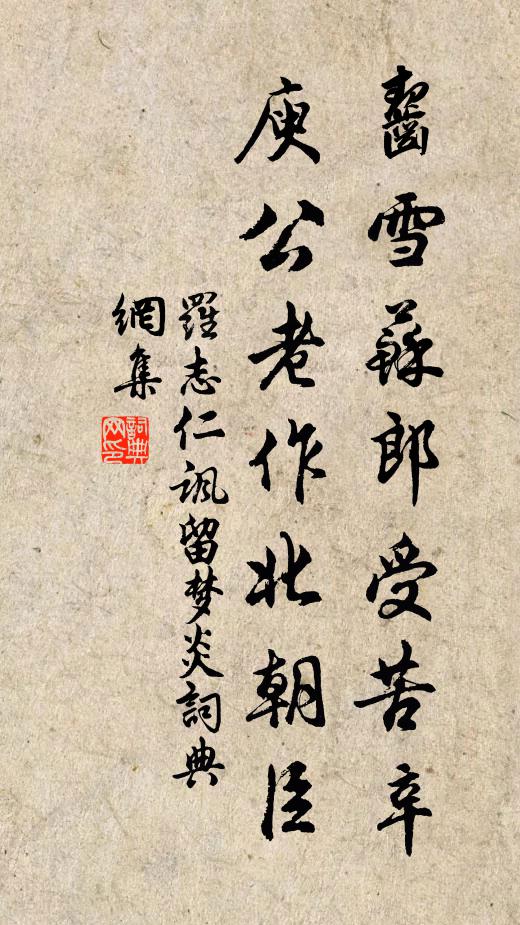 齧雪蘇郎受苦辛
庾公老作北朝臣
羅志仁諷留梦炎詞典
網集
詞典
网印